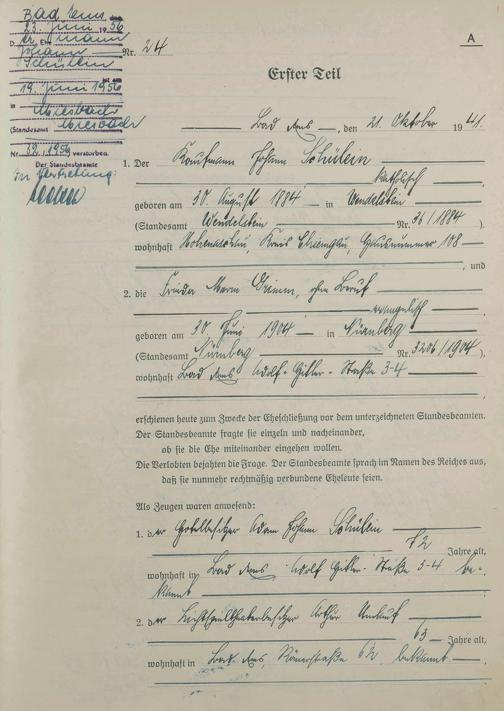 Bad Ems, den
23. Juni 1956
D er Ehemann
Johann
Schülein
ist am
19. Juni 1956
in Miesbach
(Standesamt Miesbach
Nr. 32/1956 verstorben.
Der Standesbeamte
In Vertretung:
Nr. 24
A
Erster Teil
Bad Ems, den 21. Oktober 1941.
1. Der Kaufmann Johann Schülein
katholisch
geboren am 30. August 1884 in Wendelstein
(Standesamt Wendelstein Nr. 36/1884 ).
wohnhaft Hohenaschau, Kreis Chiemgau, Hausnummer 108
, und
2. die Frieda Maria Grimm, ohne Beruf
evangelisch
geboren am 30 Juni 1904 in Nürnberg
(Standesamt Nürnberg Nr. 3206/1904 ).
wohnhaft Bad Ems Adolf-Hitler-Straße 3-4
erschienen heute zum Zwecke der Eheschließung vor dem unterzeichneten Standesbeamten.
Der Standesbeamte fragte sie einzeln und nacheinander,
ob sie die Ehe miteinander eingehen wollen.
Die Verlobten bejahten die Frage. Der Standesbeamte sprach im Namen des Reiches aus,
daß sie nunmehr rechtmäßig verbundene Eheleute seien.
Als Zeugen waren anwesend:
1. der Hotelbesitzer Adam Johann Schülein
72 Jahre alt,
wohnhaft in Bad Ems Adolf Hitler-Straße 3-4 be-
kannt
2. der Lichtspieltheaterbesitzer Arthur
63 Jahre alt,
wohnhaft in Bad Ems, Römerstraße 62 bekannt